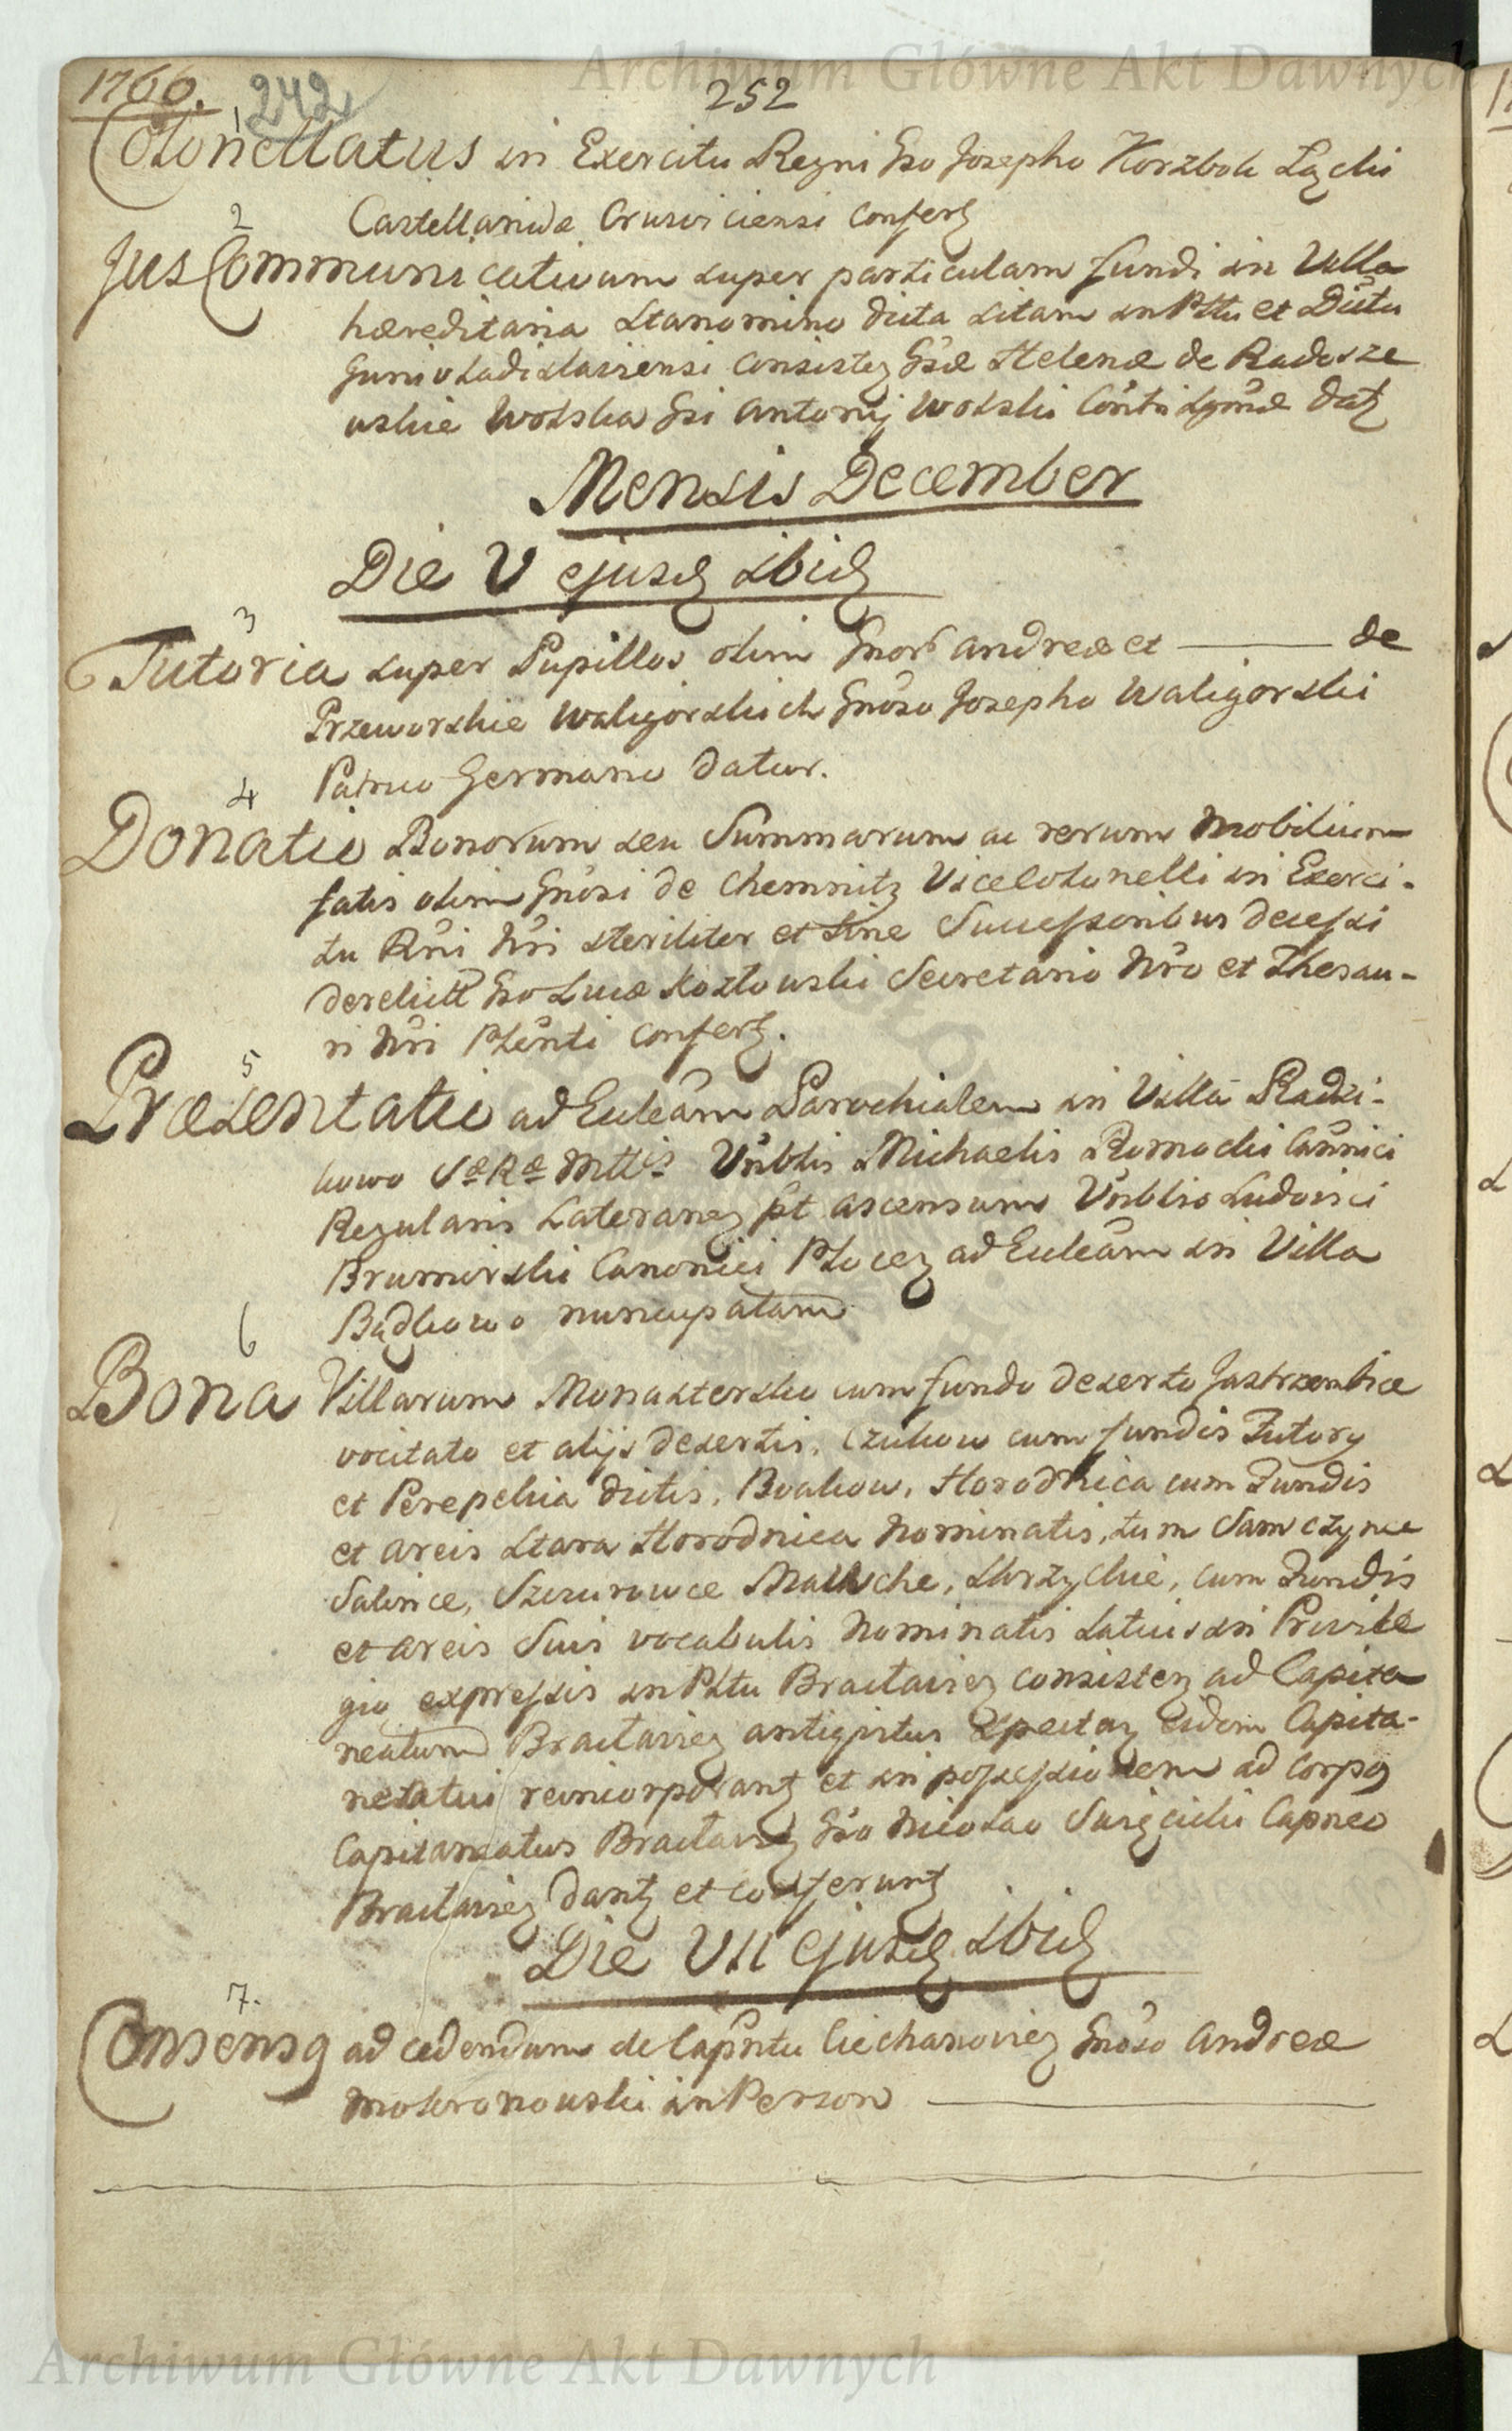 Archiwum Główne Akt Dawnych
1766.
242
252
1
Colonellatus in Exercitu Regni Gso Josepho Korzbok Łącki
Castellanidæ Crusviciensi Confertz
2
Jus Communicativum super particulam fundi in Villa
hæreditaria Stanomino dicta sitam in Pttu et Distu
Juniuladislaviensi Consistez Gsæ Helenæ de Radosze
wskie Wolska Gsi Antonij Wolski Conti datz
Mensis December
Die V ejusd ibid
3
Tutoria super Pupillos olim Gnor Andreæ et ——— de
Przeworskie Waligorskich Gnoso Josepho Waligorski
Patruo Germano datur.
4
Donatio Bonorum seu Summarum ac rerum mobilium
fatis olim Gnosi de Chemnitz Vicecolonelli in Exerci-
tu Rni Nri steriliter et sine Successoribus decessi
derelict Gso Lucæ Kozłowski Secretario Nro et Thesau-
ri Nri Plenti confertz.
5
Præsentatio ad Eccleam Parochialem in Villa Radzi-
kowo Sæ Ræ Mttis Vnblis Michaelis Romocki Cannici
Regularis Lateranez pt ascensum Vnblis Ludovici
Brumirski Canonici Plocez ad Eccleam in Villa
Bądkowo nuncupatam
6
Bona Villarum Monastersko cum fundo deserto Jastrzembice
vocitato et alijs desertis, Czukow cum fundis Tutory
et Perepelica dictis, Buakow, Horodnica cum Fundis
et areis Stara Horodnica nominatis, tum Samczynce
Salnice, Szczurowce Maluche, Skrzyckie, cum Fundis
et areis suis vocabulis nominatis latius in Privile
gio expressis in Pttu Braclaviez consistez ad Capita
neatum Braclaviez antiqitus spectaz eidem Capita-
neatui reincorporantz et in possessionem ad corpq
Capitaneatus Braclaviez Gso Nicolao Swięcicki Capneo
Braclaviez dantz et conferuntz
Die VII ejusd ibid
7.
Consensq ad cedendum de Capntu Ciechanoviez Gnoso Andreæ
Mokronowski in Person ———
Archiwum Główne Akt Dawnych